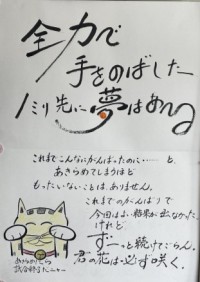 全力で
手をのばした
1ミリ先に夢はある
これまでこんなにがんばったのに……と、
あきらめてしまうほど
もったいないことは、ありません。
これまでのがんばりで
今回はよい結果が出なかった
けれど、
ず〜っと続けてごらん。
君の花は必ず咲く。
あきらめたら
試合終了だニャー